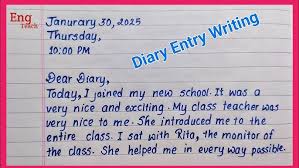 Eng
Teach
Janurary 30, 2025
Thursday,
10:00 PM
Diary Entry Writing
Dear Diary,
Today, I joined my new school. It was a
very nice and exciting. My class teacher was
very nice to me. She introduced me to the
entire class. I sat with Rita, the monitor of
the class. She helped me in every way possible.